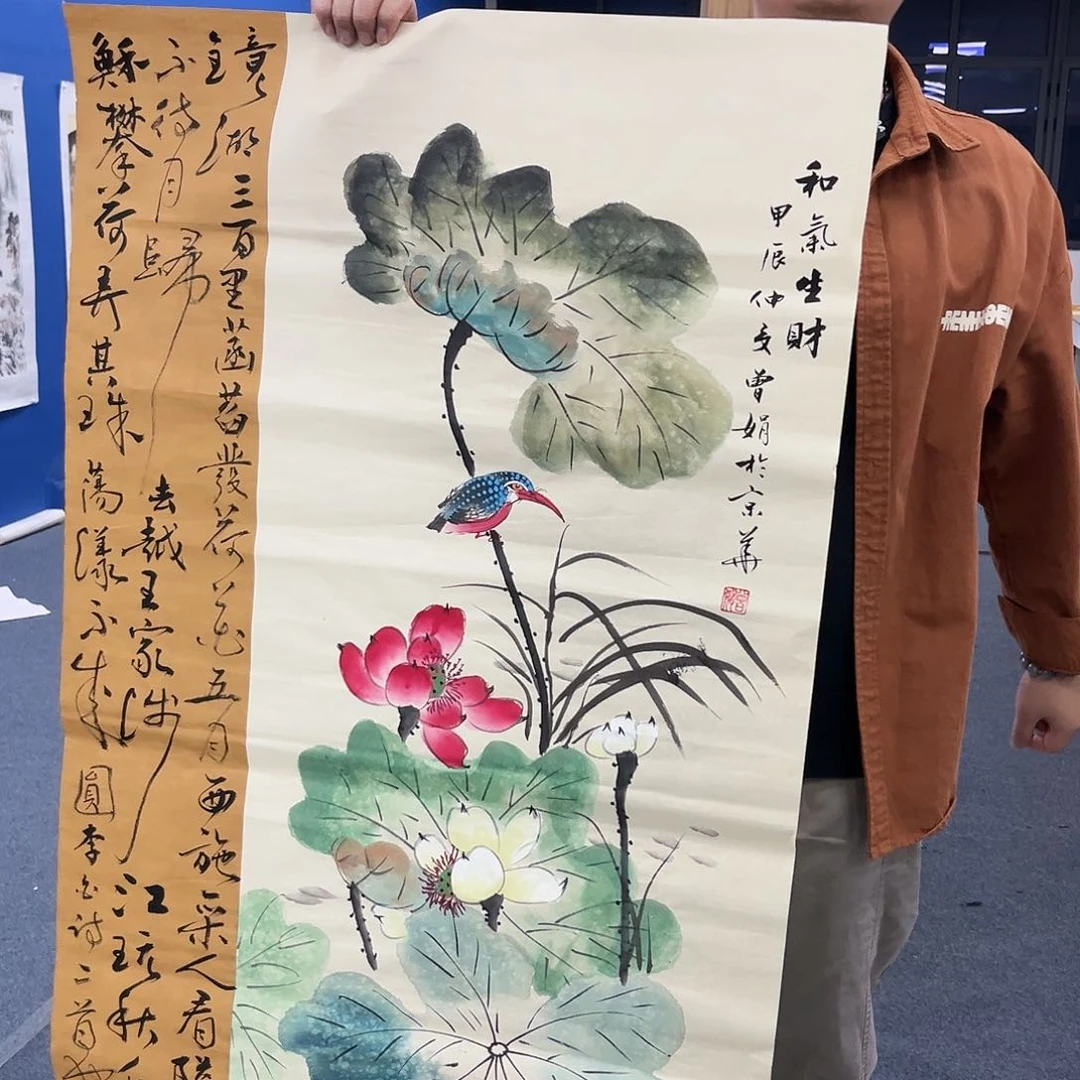 和氣生財
甲辰仲夏曾娟於京華
鏡湖三百里菡萏發荷花五月西施采人看隘
不待月歸去越王家涉江玩秋
鮮攀荷弄其珠蕩漾不成圓李白詩二首